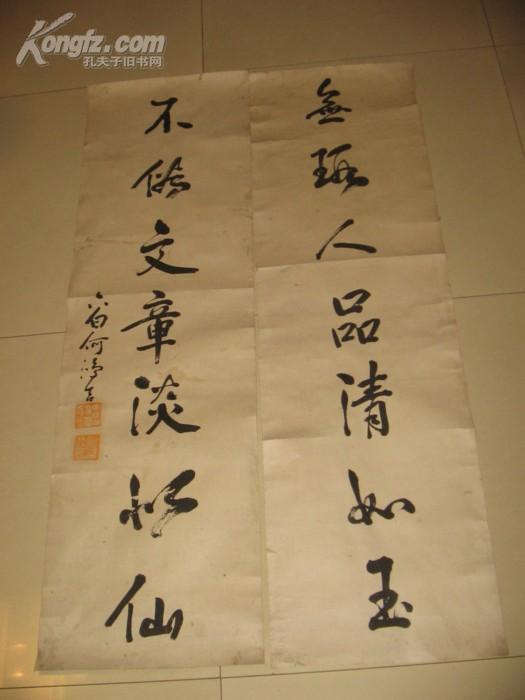 Kongfz.com
孔夫子旧书网
無瑕人品清如玉
不俗文章淡似仙
何